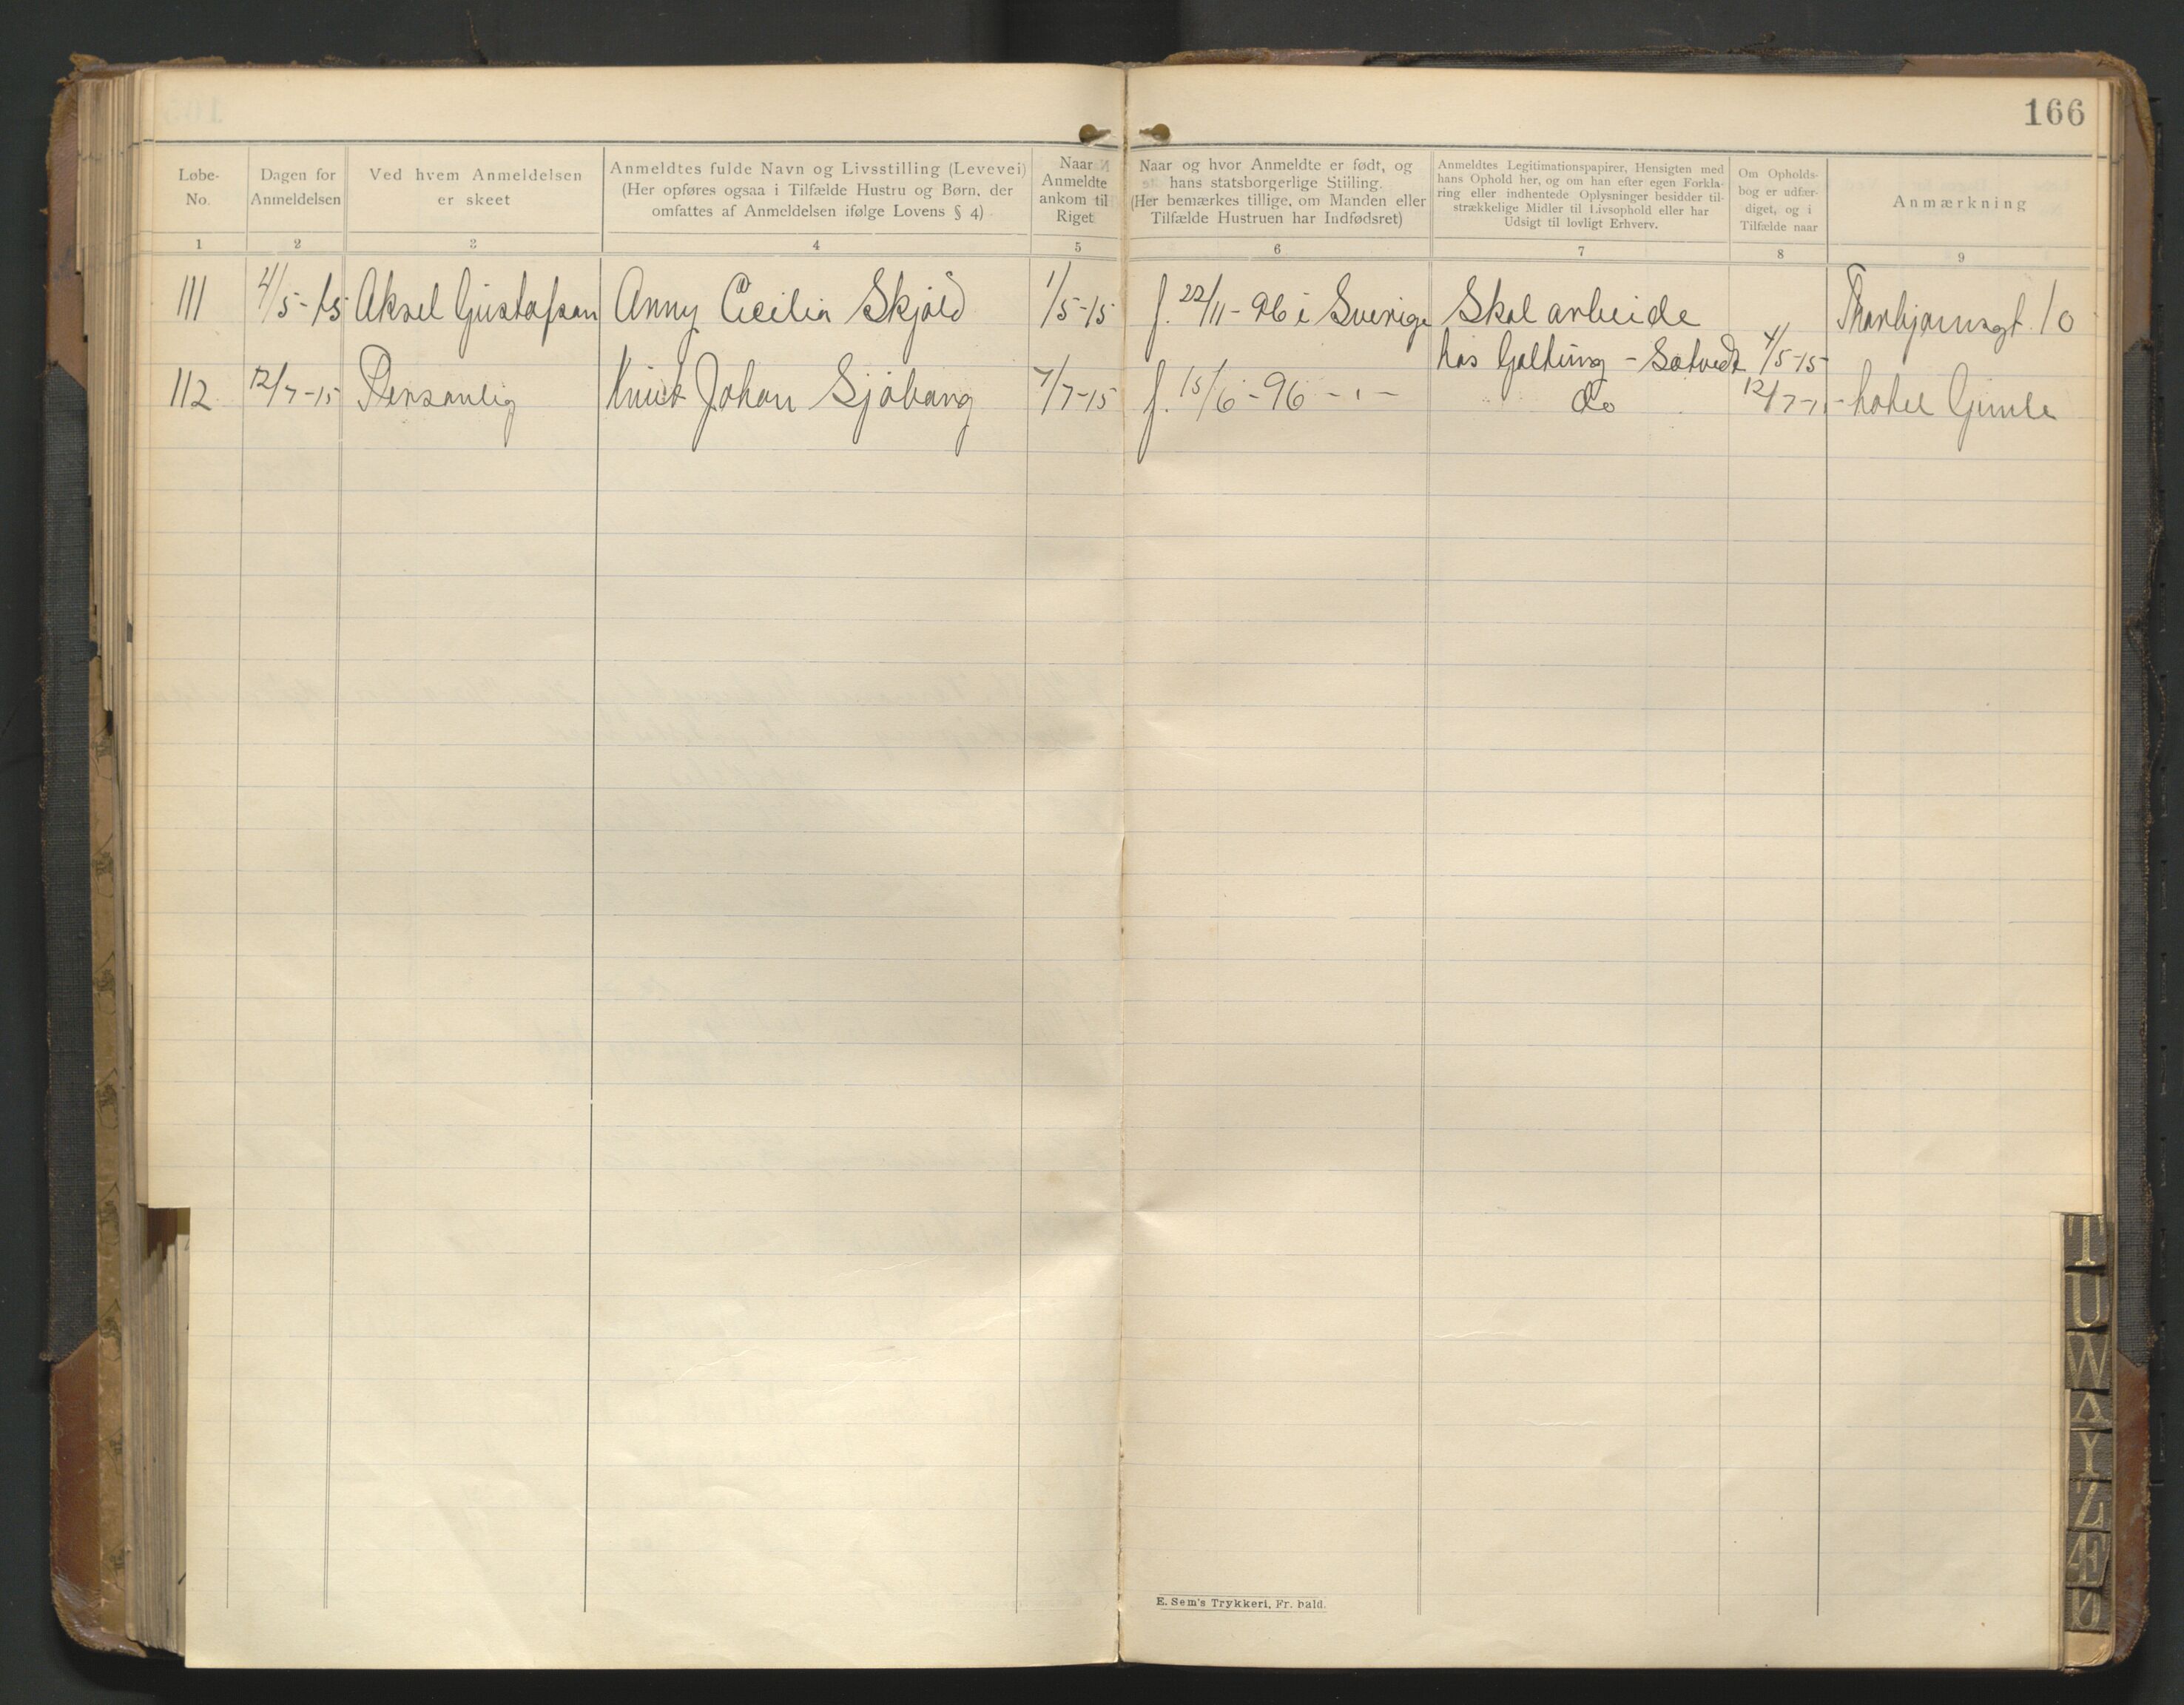 166
Løbe-
No.
Dagen for
Anmeldelsen
Ved hvem Anmeldelsen
er skeet
Anmeldtes fulde Navn og Livsstilling (Levevei)
(Her opføres ogsaa i Tilfælde Hustru og Børn, der
omfattes af Anmeldelsen ifølge Lovens § 4)
Naar
Anmeldte
ankom til
Riget
Naar og hvor Anmeldte er født, og
hans statsborgerlige Stilling.
(Her bemærkes tillige, om Manden eller
Tilfælde Hustruen har Indfødsret)
Anmeldtes Legitimationspapirer, Hensigten med
hans Ophold her, og om han efter egen Forkla-
ring eller indhentede Oplysninger besidder til-
strækkelige Midler til Livsophold eller har
Udsigt til lovligt Erhverv.
Om Opholds-
bog er udfær-
diget, og i
Tilfælde naar
Anmærkning
1 2 3 4 5 6 7 8 9
111 4/5-15 Aksel Gustafson Anny Cecilia Skjöld 1/5-15 f. 22/11-96 i Sverige Skal arbeide Thorbjørnsgt. 10
hos Galtung - 4/5-15
112 12/7-15 Personlig Knut Johan 7/7-15 f. 15/6-96 -"- do 12/7-1 hotel Gimle
E. Sem's Trykkeri, Fr. hald.
T
U
W
Y
Z
Æ
Ø